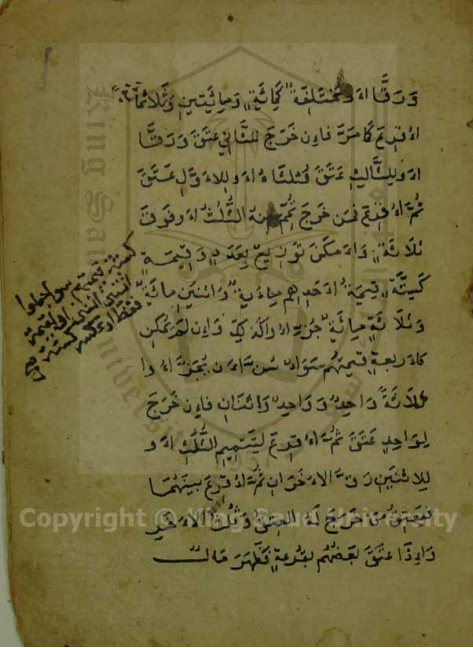 وَرَقَّا أَوْ مُخْتَلِفَةً كَمِائَةٍ وَمِائَتَيْنِ وَثَلَاثُمِائَةٍ
أُقْرِعَ كَمَا مَرَّ فَإِنْ خَرَجَ لِلثَّانِي عَتَقَ وَرَقَّا
أَوْ لِلثَّالِثِ عَتَقَ ثُلُثَاهُ أَوْ لِلْأَوَّلِ عَتَقَ
ثُمَّ أُقْرِعَ فَمَنْ خَرَجَ تُمِّمَ مِنْهُ الثُّلُثُ أَوْ فَوْقَ
ثَلَاثَةٍ وَأَمْكَنَ تَوْزِيعٌ بِعَدَدٍ وَقِيمَةٍ
كَسِتَّةٍ قِيمَةُ أَحَدِهِمْ مِائَةٌ وَاثْنَيْنِ مِائَةٌ
وَثَلَاثَةٍ مِائَةٌ جُزِّءُوا كَذَلِكَ وَإِنْ لَمْ يُمْكِنْ
كَأَرْبَعَةٍ قِيمَتُهُمْ سَوَاءٌ سُنَّ أَنْ يُجَزَّءُوا
ثَلَاثَةً وَاحِدٌ وَوَاحِدٌ وَاثْنَانِ فَإِنْ خَرَجَ
لِوَاحِدٍ عَتَقَ ثُمَّ أُقْرِعَ لِتَتْمِيمِ الثُّلُثِ أَوْ
لِلِاثْنَيْنِ رَقَّ الْآخَرَانِ ثُمَّ أُقْرِعَ بَيْنَهُمَا
فَيَعْتِقُ مَنْ خَرَجَ لَهُ الْعِتْقُ وَثُلُثُ الْآخَرِ
وَإِذَا عَتَقَ بَعْضُهُمْ بِقُرْعَةٍ فَظَهَرَ مَالٌ
Copyright © King Saud University
King Saud University